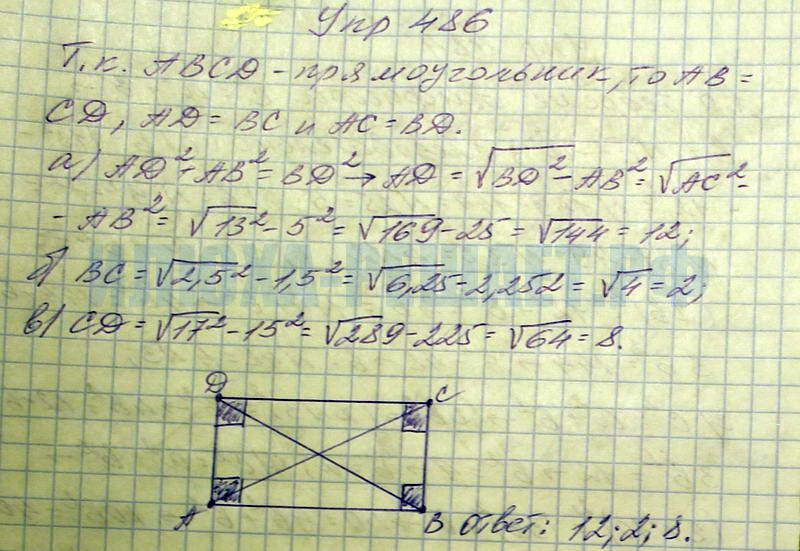 Упр 486
Т.к. ABCD - прямоугольник, то AB =
CD, AD = BC и AC = BD.
а) AD² + AB² = BD² → AD = √BD² - AB² = √AC² -
- AB² = √13² - 5² = √169 - 25 = √144 = 12;
б) BC = √2,5² - 1,5² = √6,25 - 2,252 = √4 = 2;
в) CD = √17² - 15² = √289 - 225 = √64 = 8.
D C
A B
Ответ: 12; 2; 8.